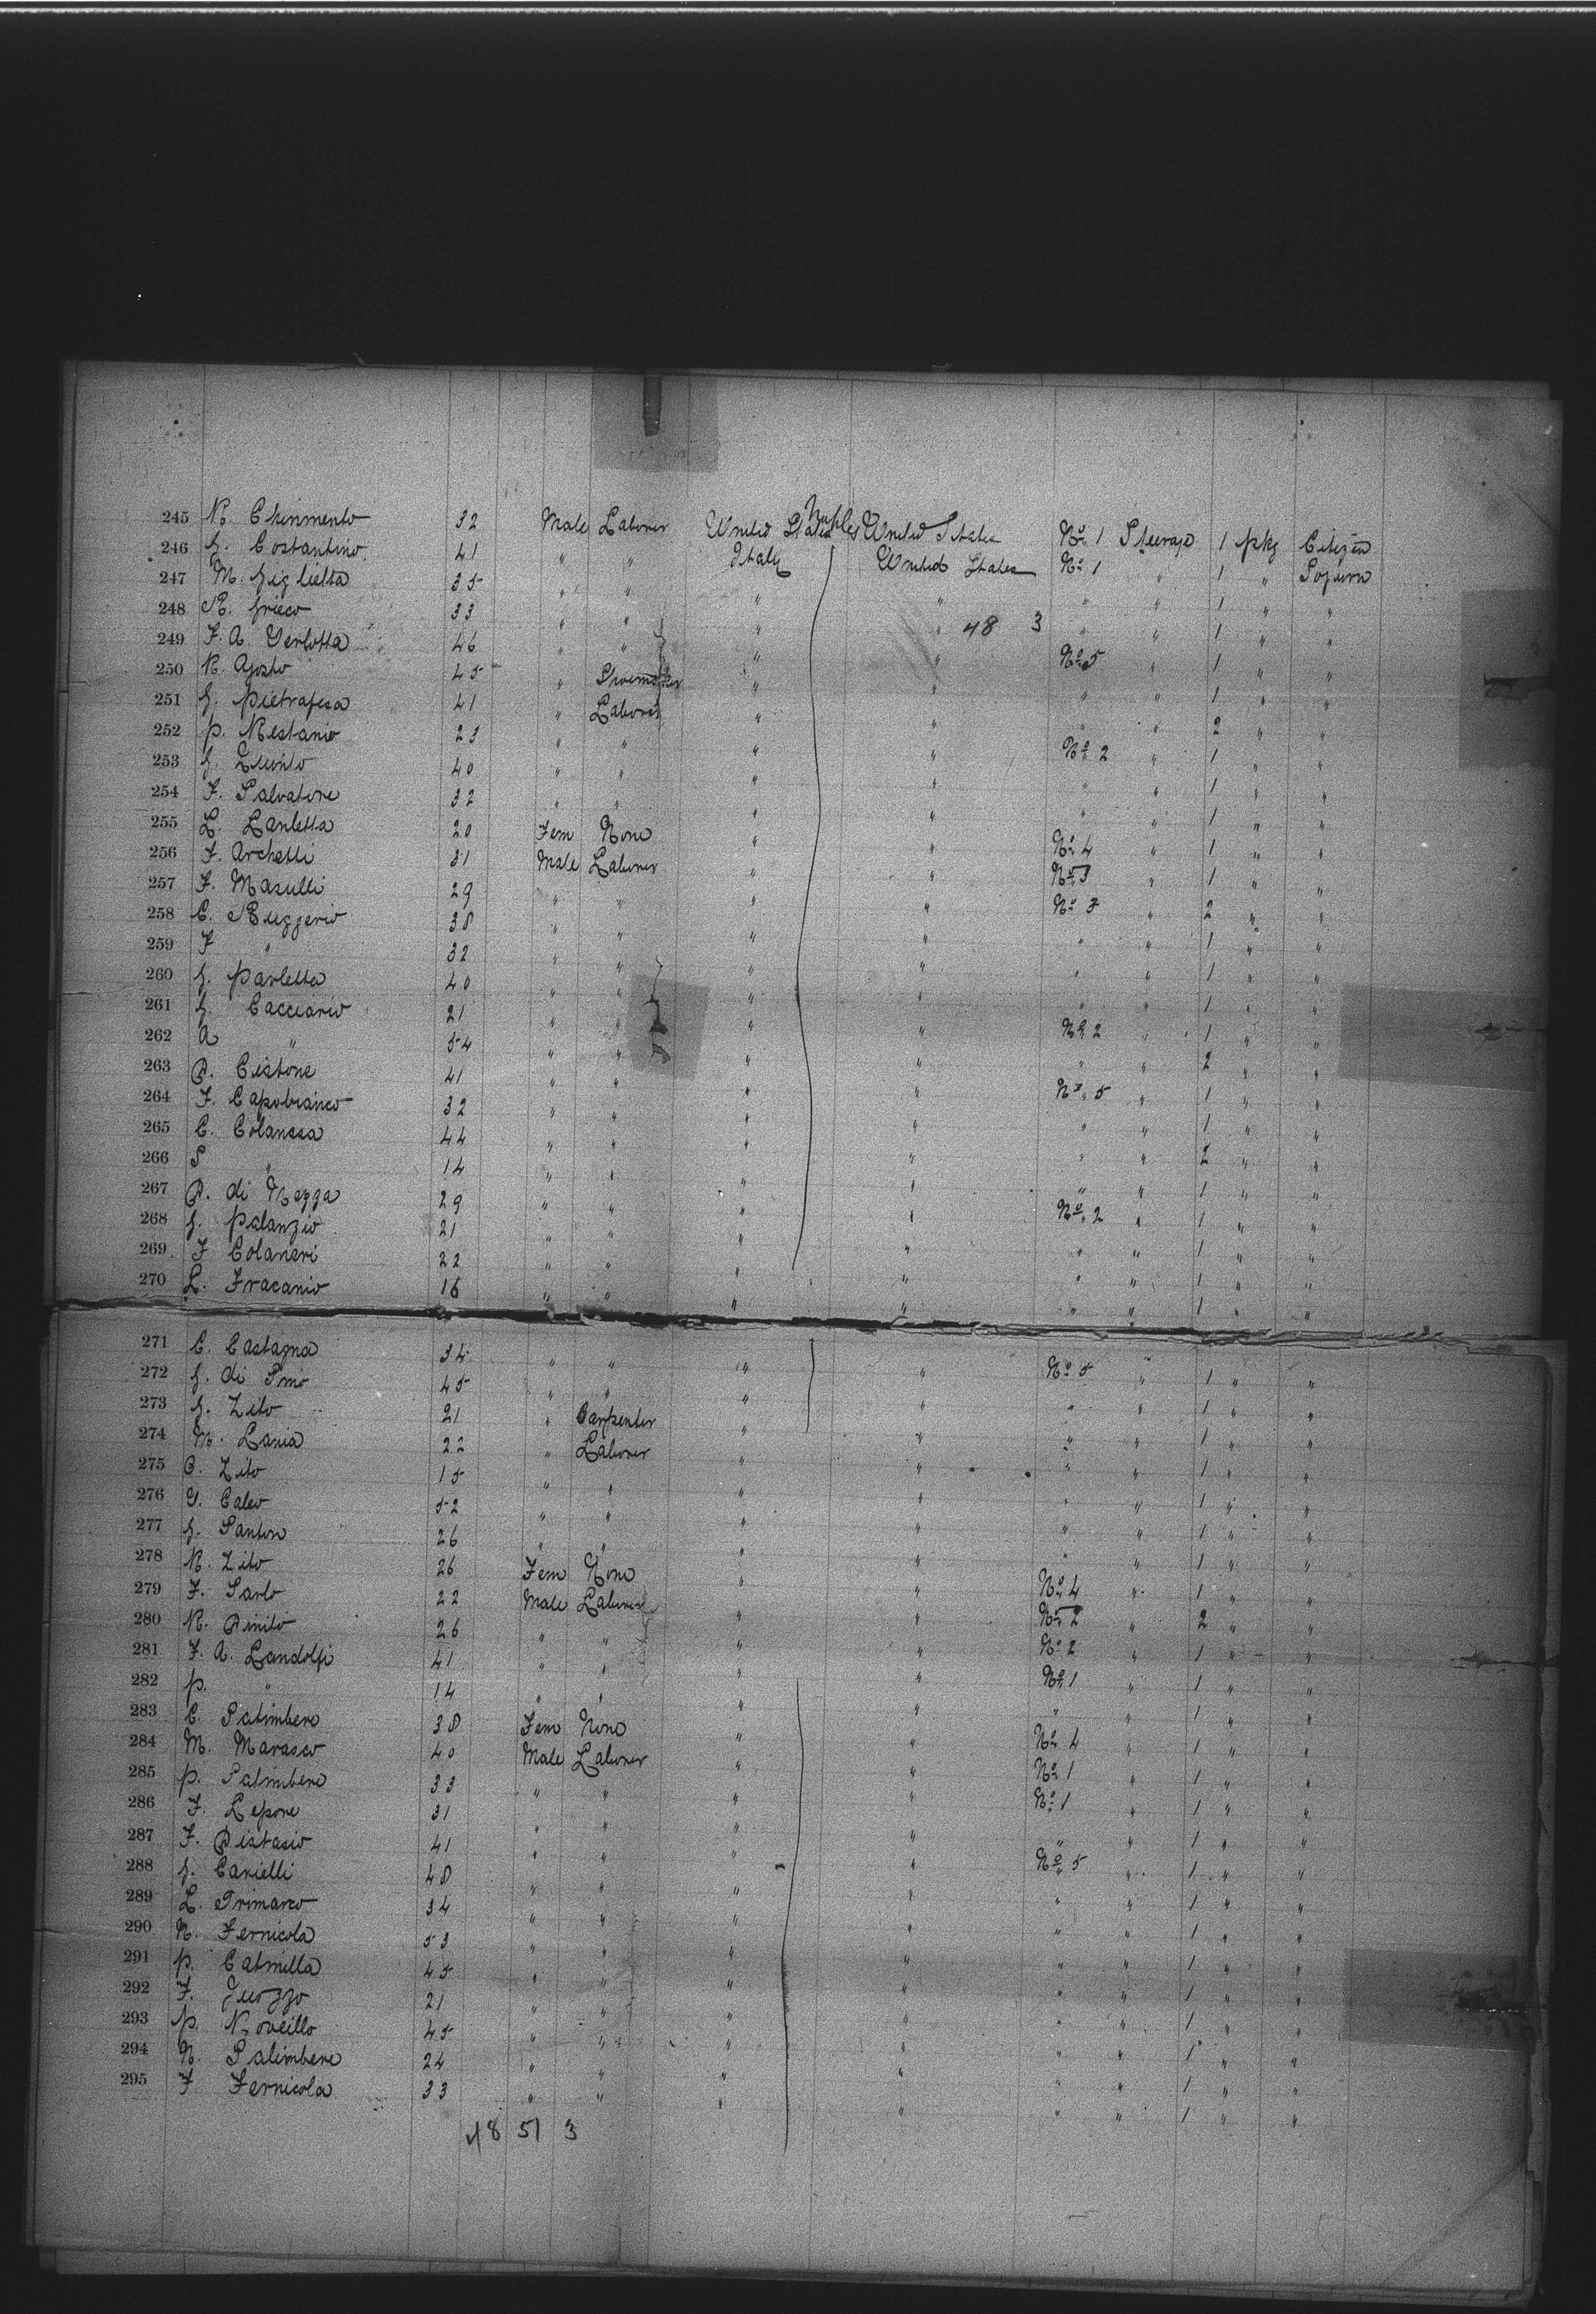 Naples
245 N. Chimmento 32 Male Laborer United States United States No. 1 Steerage 1 pkg Citizen
246 G. Costantino 41 " " Italy United States No. 1 " 1 " Sojurn
247 M. Giglietta 35 " " " " " " 1 " "
248 R. Grieco 33 " " " " 48 3 " " 1 " "
249 F. A. Verlotta 46 " " " " No. 5 " 1 " "
250 N. Agosto 45 " Shoemaker " " " " 1 " "
251 G. Pietrafesa 41 " Laborer " " " " 2 " "
252 P. Nestanio 23 " " " " No. 2 " 1 " "
253 G. 40 " " " " " " 1 " "
254 F. Salvatore 32 " " " " " " 1 " "
255 L. Lanletta 20 Fem None " " No. 4 " 1 " "
256 F. Archetti 31 Male Laborer " " No. 3 " 1 " "
257 F. Masulli 29 " " " " No. 7 " 2 " "
258 C. Ruggerio 38 " " " " " " 1 " "
259 F " 32 " " " " " " 1 " "
260 G. Parletta 40 " " " " " " 1 " "
261 G. Cacciario 21 " " " " No. 2 " 1 " "
262 A " 54 " " " " " " 2 " "
263 D. Cistone 41 " " " " No. 5 " 1 " "
264 F. Capobianco 32 " " " " " " 1 " "
265 C. Colanssa 44 " " " " " " 2 " "
266 S " 14 " " " " " " 1 " "
267 D. di Nezza 29 " " " " No. 2 " 1 " "
268 G. Palanzio 21 " " " " " " 1 " "
269 F Colaneri 22 " " " " " " 1 " "
270 L. Fracanio 16 " " " " " " 1 " "
271 C. Castagna 34 " " " " No. 5 " 1 " "
272 G. di Pino 45 " " " " " " 1 " "
273 G. Zito 21 " Carpenter " " " " 1 " "
274 M. Lania 22 " Laborer " " " " 1 " "
275 B. Zito 15 " " " " " " 1 " "
276 V. Caleo 52 " " " " " " 1 " "
277 G. Santoro 26 " " " " " " 1 " "
278 N. Zito 26 Fem None " " No. 4 " 1 " "
279 F. Sarlo 22 Male Laborer " " No. 2 " 2 " "
280 N. Dinito 26 " " " " No. 2 " 1 " "
281 F. A. Landolfi 41 " " " " No. 1 " 1 " "
282 P. " 14 " " " " " " 1 " "
283 C. Salimbene 38 Fem None " " No. 4 " 1 " "
284 M. Marasco 40 Male Laborer " " No. 1 " 1 " "
285 P. Salimbene 33 " " " " No. 1 " 1 " "
286 F. Lepore 31 " " " " " " 1 " "
287 F. Distasio 41 " " " " No. 5 " 1 " "
288 G. Carielli 48 " " " " " " 1 " "
289 L. Trimarco 34 " " " " " " 1 " "
290 N. Fernicola 53 " " " " " " 1 " "
291 P. Catmilla 45 " " " " " " 1 " "
292 F. Guozzo 21 " " " " " " 1 " "
293 P. Noviello 45 " " " " " " 1 " "
294 N. Salimbene 24 " " " " " " 1 " "
295 F Fernicola 33 " " " " " " 1 " "
48 51 3